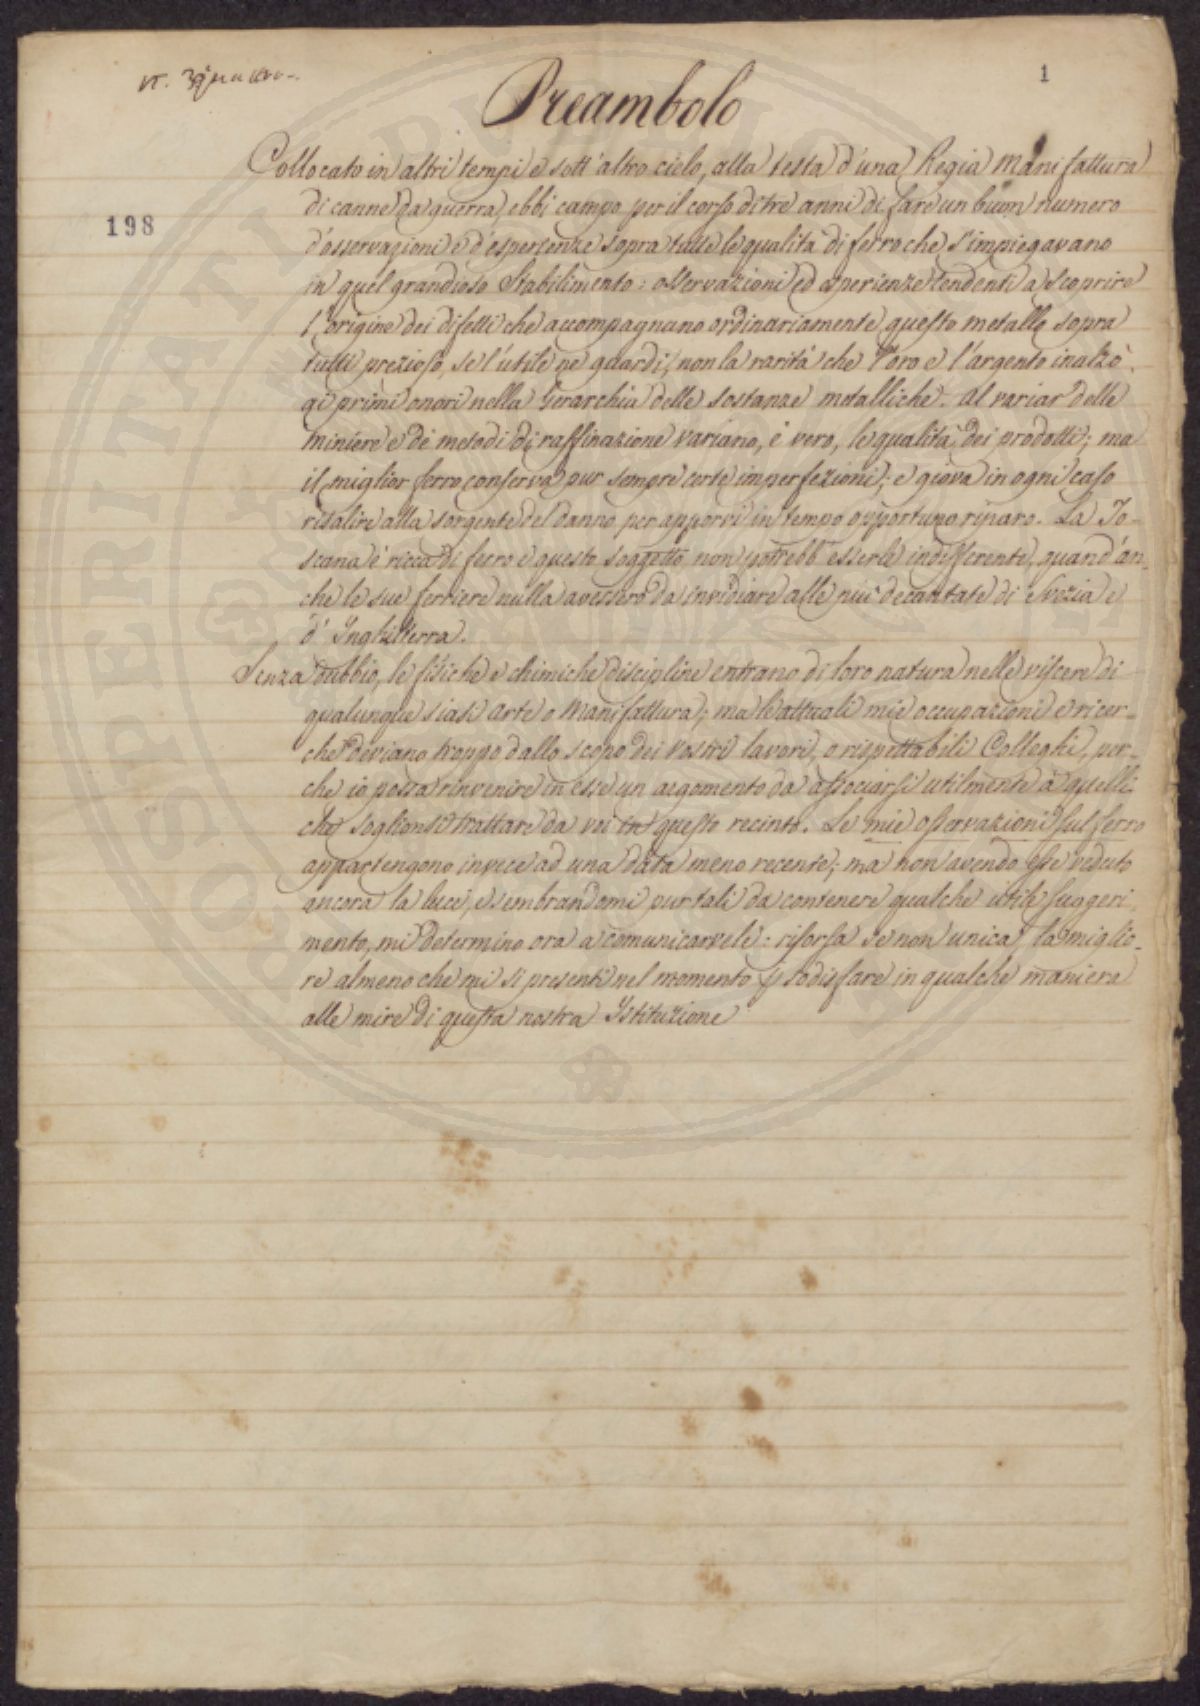 1
Preambolo
198
Collocato in altri tempi e sott'altro cielo, alla testa d'una Regia Manifattura
di canne da guerra ebbi campo per il corso di tre anni di fare un buon numero
d'osservazioni e d'esperienze sopra tutte le qualità di ferro che s'impiegavano
in quel grandioso Stabilimento: osservazioni ed esperienze tendenti a scoprire
l'origine dei difetti che accompagnano ordinariamente questo metallo sopra
tutti prezioso, se l'utile ne guardi, non la rarità che l'oro e l'argento inalzò
ai primi onori nella Gerarchia delle sostanze metalliche. Al variar delle
miniere e de' metodi di raffinazione variano, è vero, le qualità dei prodotti; ma
il miglior ferro conserva pur sempre certe imperfezioni; e giova in ogni caso
risalire alla sorgente del danno per apporvi in tempo opportuno riparo. La To-
scana è ricca di ferro e questo soggetto non potrebb'esserle indifferente, quand'an-
che le sue ferriere nulla avessero da invidiare alle più decantate di Svezia e
d'Inghilterra.
Senza dubbio, le fisiche e chimiche discipline entrano di loro natura nelle viscere di
qualunque siasi Arte o Manifattura; ma le attuali mie occupazioni e ricer-
che deviano troppo dallo scopo dei vostri lavori, o rispettabili Colleghi, per-
che io possa rinvenire in esse un argomento da associarsi utilmente a quelli
che soglionsi trattare da voi in questo recinto. Le mie osservazioni sul ferro
appartengono invece ad una data meno recente; ma non avendo esse veduto
ancora la luce, e sembrandomi pur tali da contenere qualche utile suggeri-
mento, mi determino ora a comunicarvele: risorsa se non unica, la miglio-
re almeno che mi si presenti nel momento p sodisfare in qualche maniera
alle mire di questa nostra Istituzione
PROSPERITATI PUBLICAE